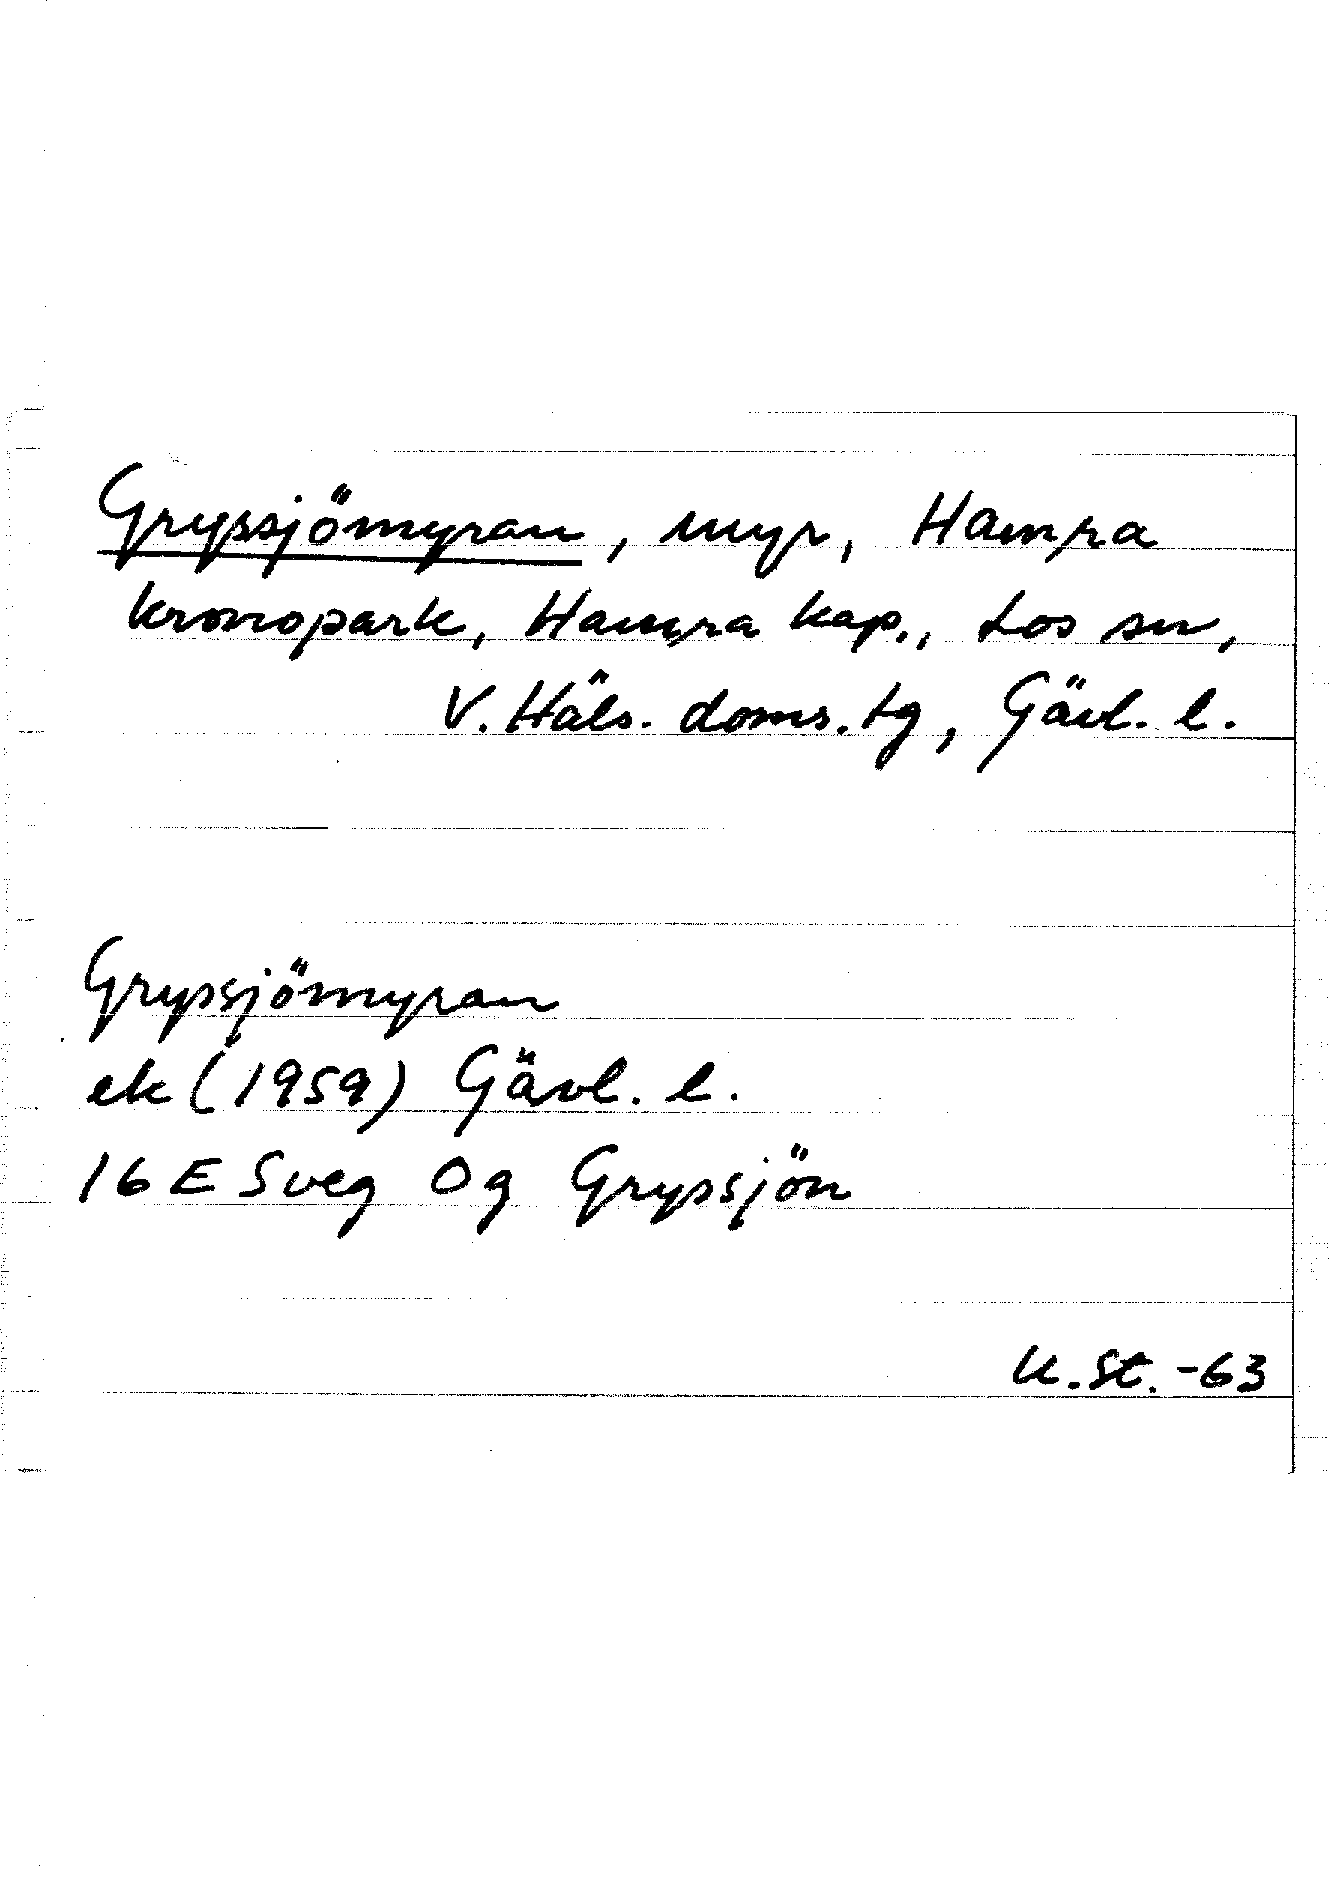 Grypssjömyran, myr, Hamra
kronopark, Hamra kap., Los sn,
V. Häls. doms. tg, Gävl. l.
Grypssjömyran
ek (1959) Gävl. l.
16 E Sveg 0g Grypssjön
U. St. -63